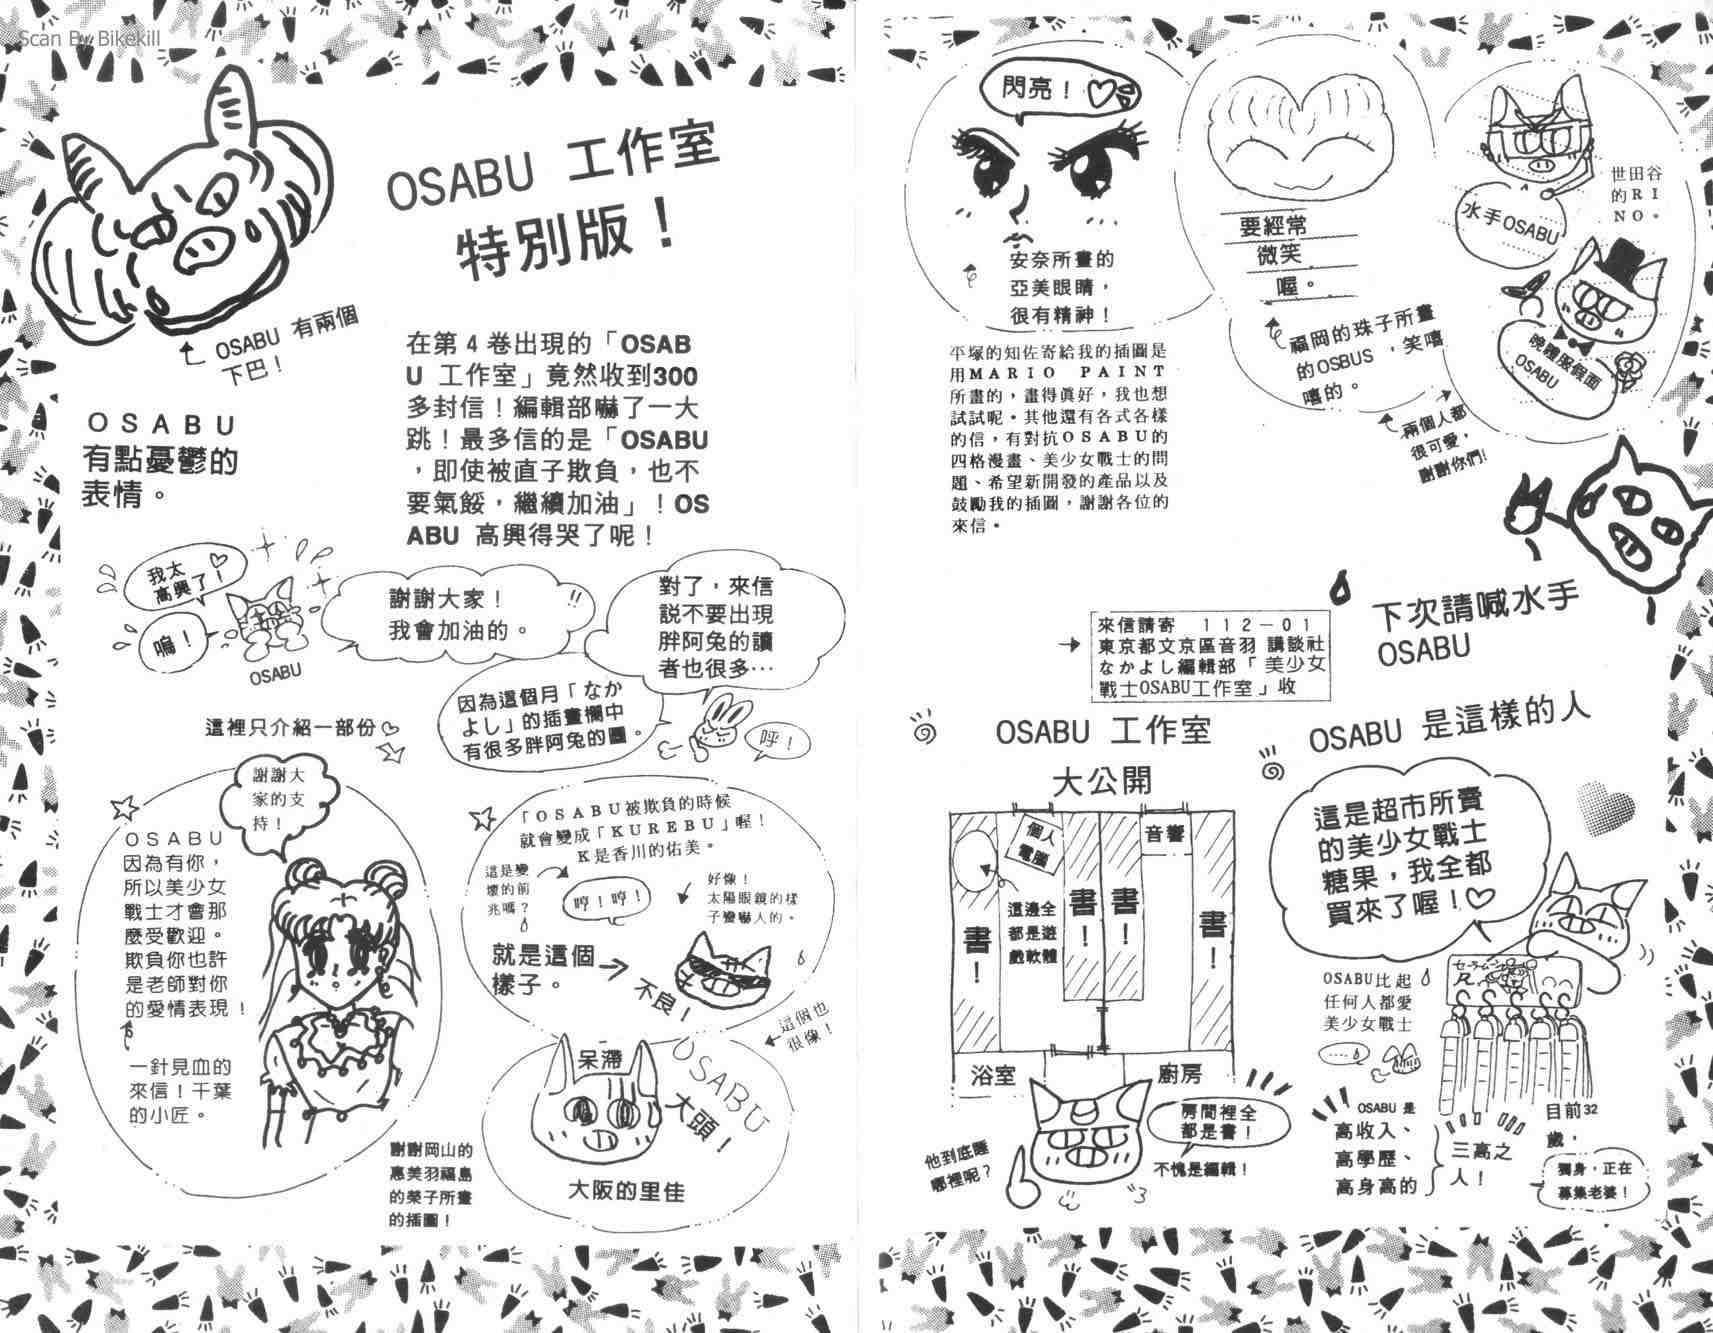 Scan By Bikekill
OSABU 工作室
特別版！
OSABU 有兩個
下巴！
OSABU
有點憂鬱的
表情。
在第4卷出現的「OSAB
U 工作室」竟然收到300
多封信！編輯部嚇了一大
跳！最多信的是「OSABU
，即使被直子欺負，也不
要氣餒，繼續加油」！OS
ABU 高興得哭了呢！
我太
高興了！
嗚！
OSABU
謝謝大家！
我會加油的。
!!
對了，來信
説不要出現
胖阿兔的讀
者也很多…
因為這個月「なか
よし」的插畫欄中
有很多胖阿兔的圖。
呼！
這裡只介紹一部份♡
謝謝大
家的支
持！
OSABU
因為有你，
所以美少女
戰士才會那
麼受歡迎。
欺負你也許
是老師對你
的愛情表現！
一針見血的
來信！千葉
的小匠。
「OSABU被欺負的時候
就會變成「KUREBU」喔！
K是香川的佑美。
這是變
壞的前
兆嗎？
哼！哼！
好像！
太陽眼鏡的樣
子蠻嚇人的。
就是這個
樣子。
不良！
這個也
很像！
呆滯
OSABU
大頭！
大阪的里佳
謝謝岡山的
惠美羽福島
的榮子所畫
的插圖！
閃亮！♡
安奈所畫的
亞美眼睛，
很有精神！
要經常
微笑
喔。
福岡的珠子所畫
的OSBUS，笑嘻
嘻的。
世田谷
的RI
NO。
水手OSABU
晚禮服假面
OSABU
兩個人都
很可愛，
謝謝你們!
平塚的知佐寄給我的插圖是
用MARIO PAINT
所畫的，畫得眞好，我也想
試試呢。其他還有各式各樣
的信，有對抗OSABU的
四格漫畫、美少女戰士的問
題、希望新開發的產品以及
鼓勵我的插圖，謝謝各位的
來信。
下次請喊水手
OSABU
來信請寄 112－01
東京都文京區音羽 講談社
なかよし編輯部「美少女
戰士OSABU工作室」收
OSABU 工作室
大公開
個人
電腦
音響
書！
書！
書！
書！
這邊全
都是遊
戲軟體
浴室
廚房
他到底睡
哪裡呢？
房間裡全
都是書！
不愧是編輯！
OSABU 是這樣的人
這是超市所賣
的美少女戰士
糖果，我全都
買來了喔！♡
セーラームーン
R
OSABU比起
任何人都愛
美少女戰士
OSABU 是
高收入、
高學歷、
高身高的
三高之
人！
目前32
歲，
獨身，正在
募集老婆！